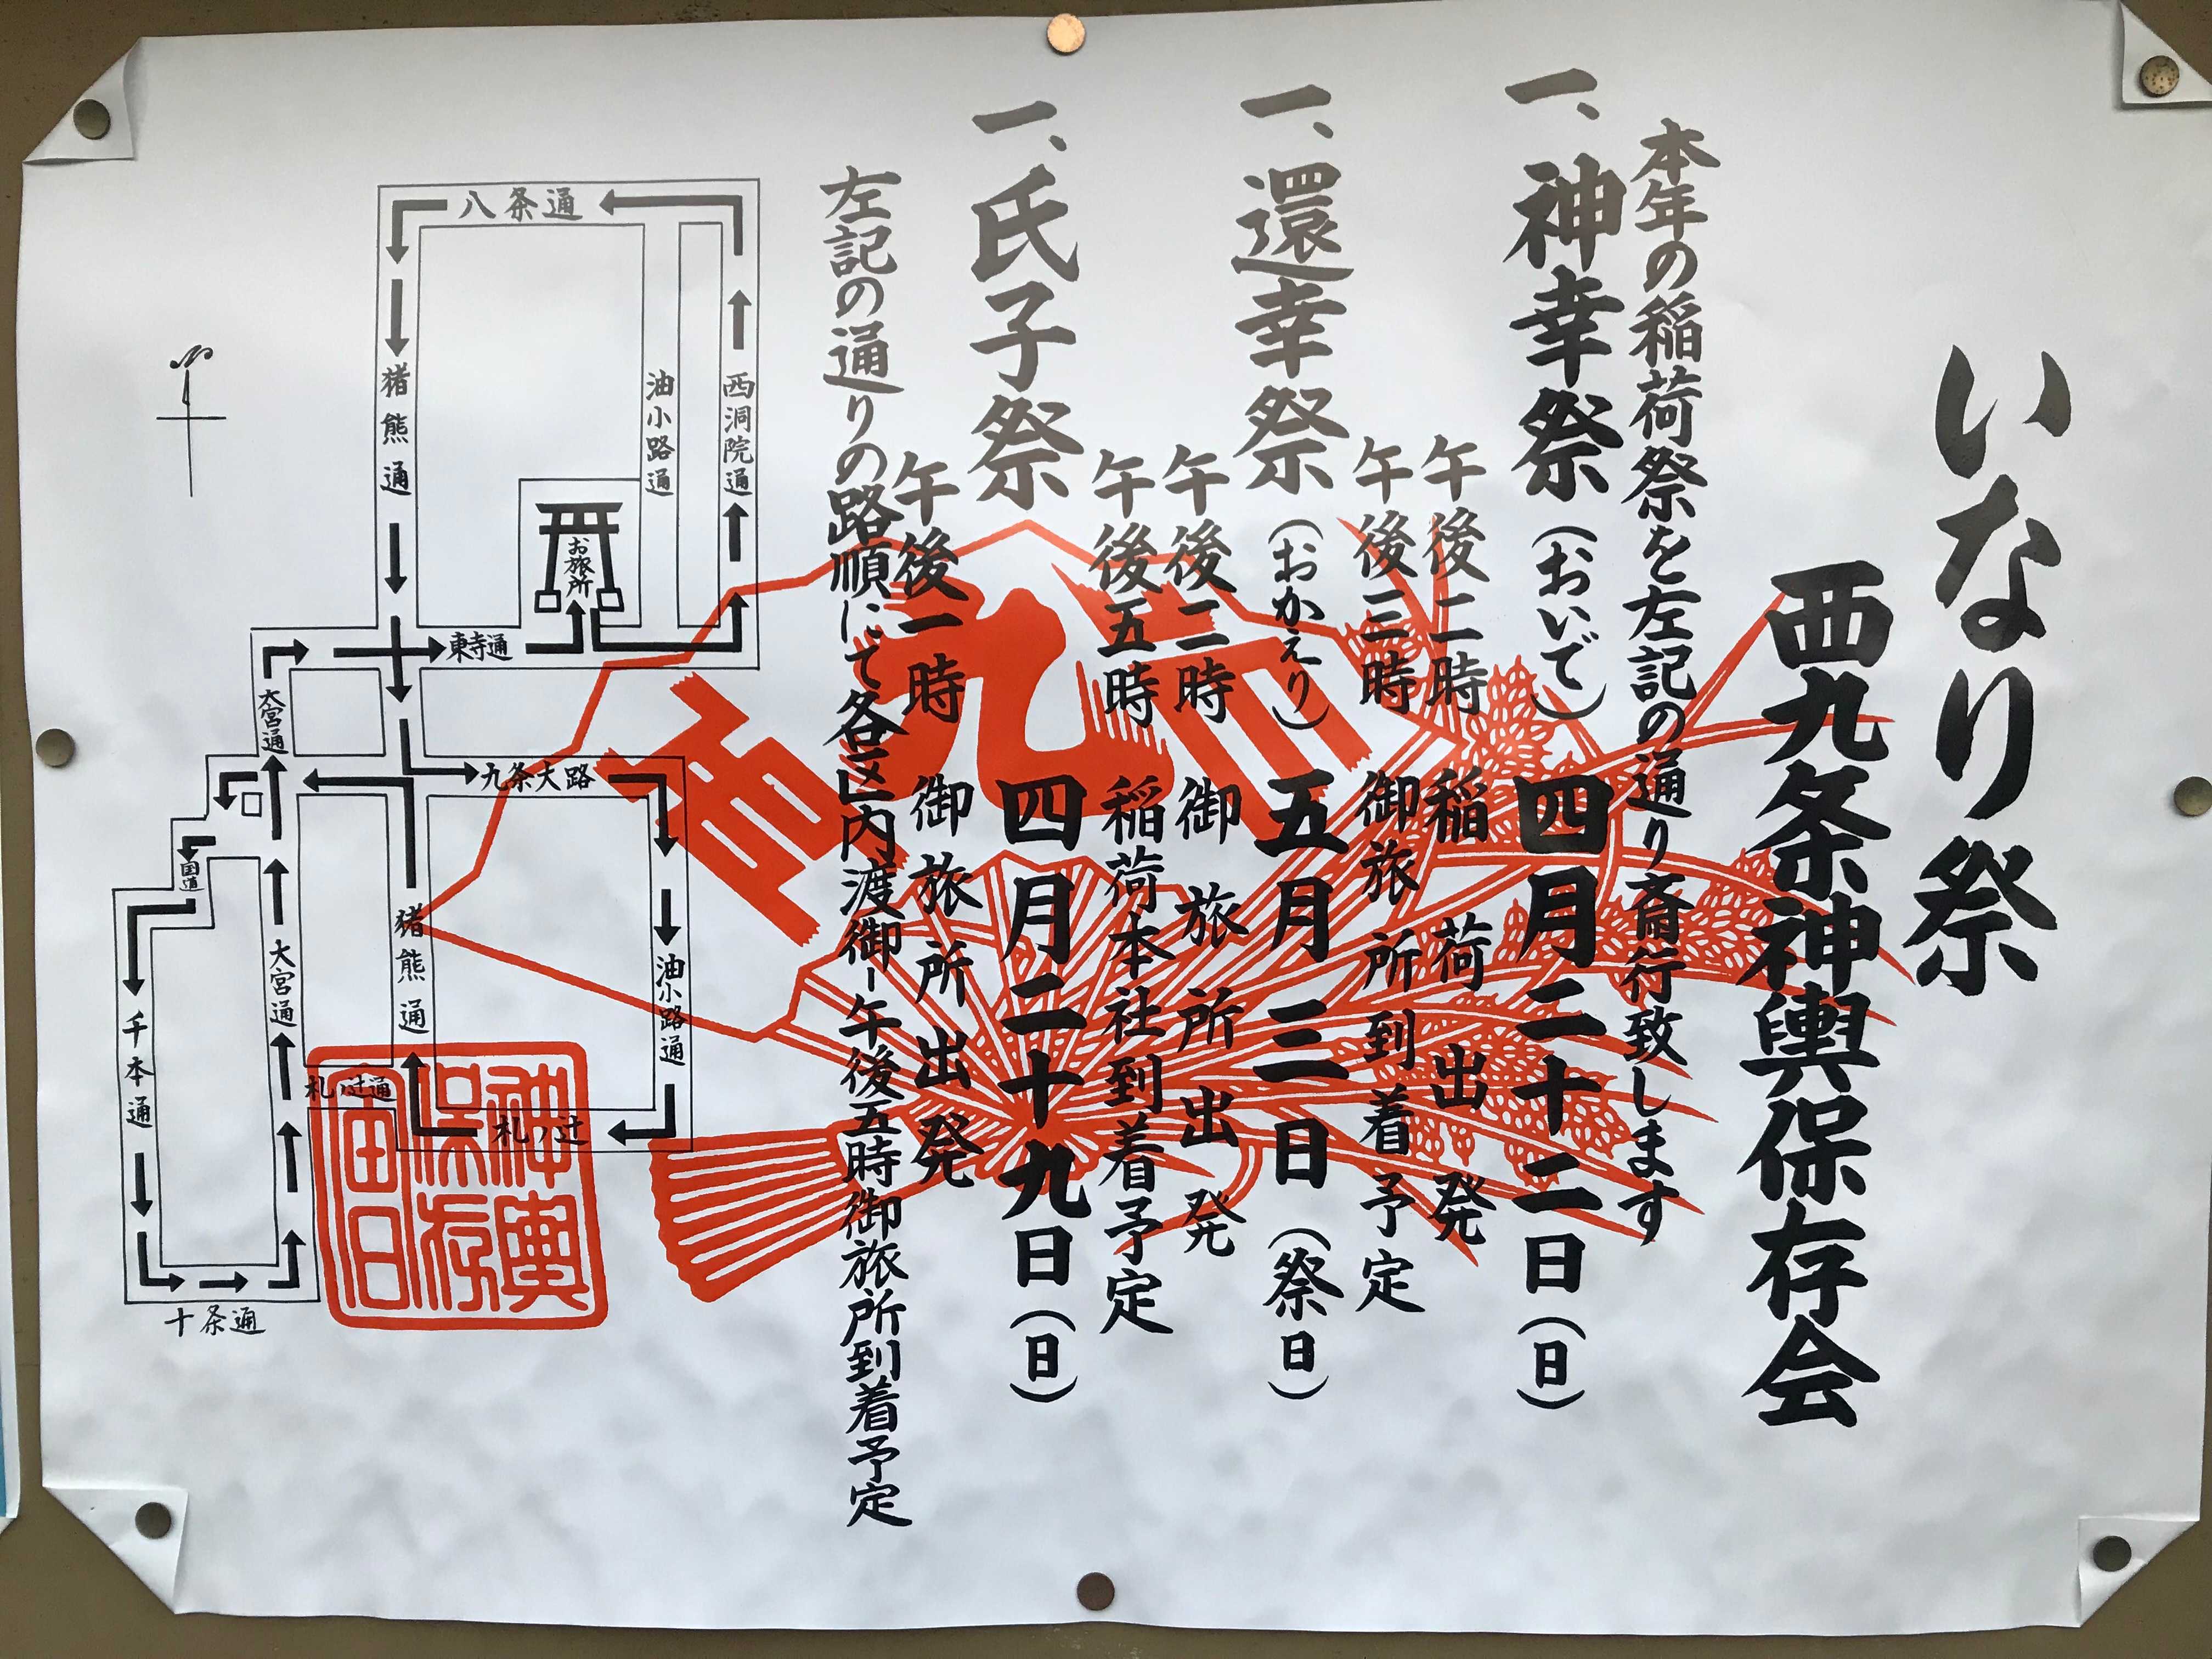 いなり祭
西九条神輿保存会
本年の稲荷祭を左記の通り斎行致します
一、神幸祭（おいで）四月二十二日（日）
午後二時 稲荷出発
午後三時 御旅所到着予定
一、還幸祭（おかえり）五月三日（祭日）
午後二時 御旅所出発
午後五時 稲荷本社到着予定
一、氏子祭 四月二十九日（日）
午後一時 御旅所出発
左記の通りの路順にて各区内渡御－午後五時御旅所到着予定
八条通
西洞院通
油小路通
猪熊通
お旅所
東寺通
大宮通
九条大路
国道
油小路通
猪熊通
大宮通
千本通
札ノ辻通
札ノ辻
十条通
九
神輿
保存